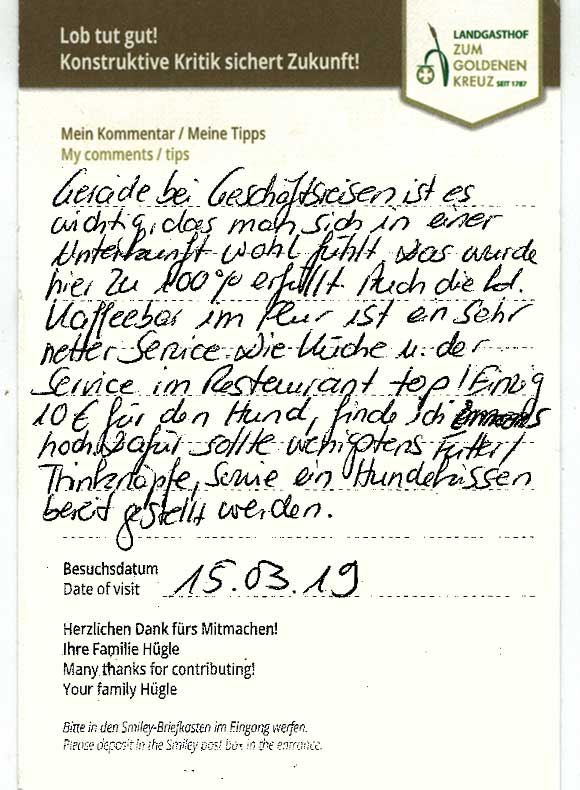 Lob tut gut!
Konstruktive Kritik sichert Zukunft!
LANDGASTHOF
ZUM
GOLDENEN
KREUZ SEIT 1787
Mein Kommentar / Meine Tipps
My comments / tips
Gerade bei Geschäftsreisen ist es
wichtig, das man sich in einer
Unterkunft wohl fühlt. Das wurde
hier zu 100% erfüllt. Auch die
Kaffeebar im Flur ist ein sehr
netter Service. Die Küche u. der
Service im Restaurant top! Einzig
10 € für den Hund, finde ich
hoch. Dafür sollte wenigstens Futter/
Trinknäpfe, sowie ein Hundekissen
bereit gestellt werden.
Besuchsdatum
Date of visit 15.03.19
Herzlichen Dank fürs Mitmachen!
Ihre Familie Hügle
Many thanks for contributing!
Your family Hügle
Bitte in den Smiley-Briefkasten im Eingang werfen.
Please deposit in the Smiley post box in the entrance.